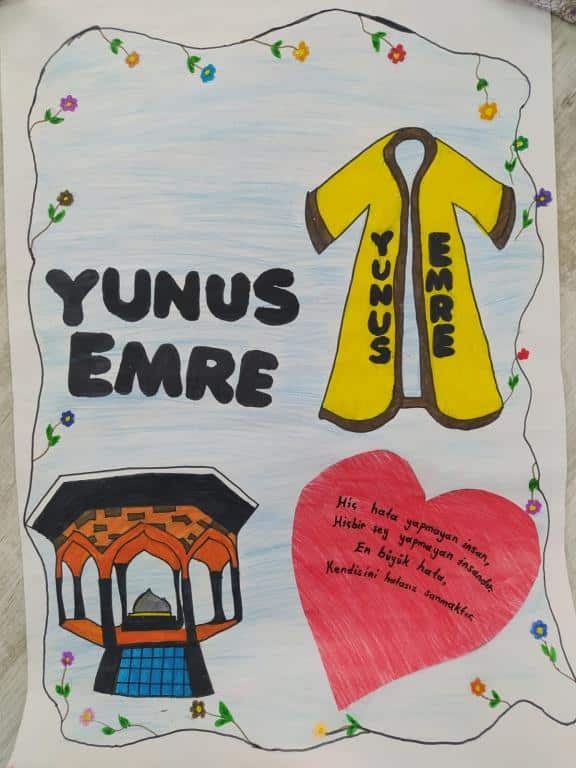 YUNUS
EMRE
YUNUS
EMRE
Hiç hata yapmayan insan,
Hiçbir şey yapmayan insandır.
En büyük hata,
Kendisini hatasız sanmaktır.